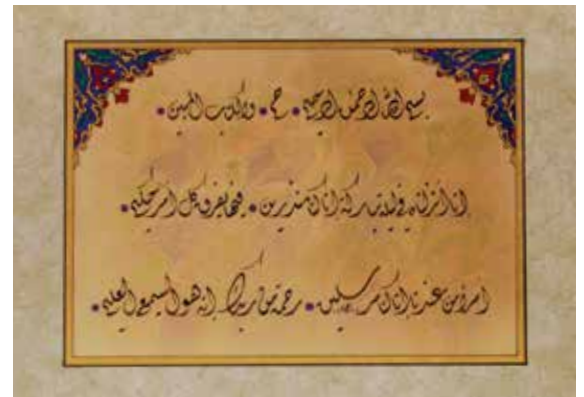 بسم الله الرحمن الرحيم • حم • والكتاب المبين •
انا أنزلناه في ليلة مباركة انا كنا منذرين • فيها يفرق كل امر حكيم •
امرا من عندنا انا كنا مرسلين • رحمة من ربك انه هو السميع العليم •